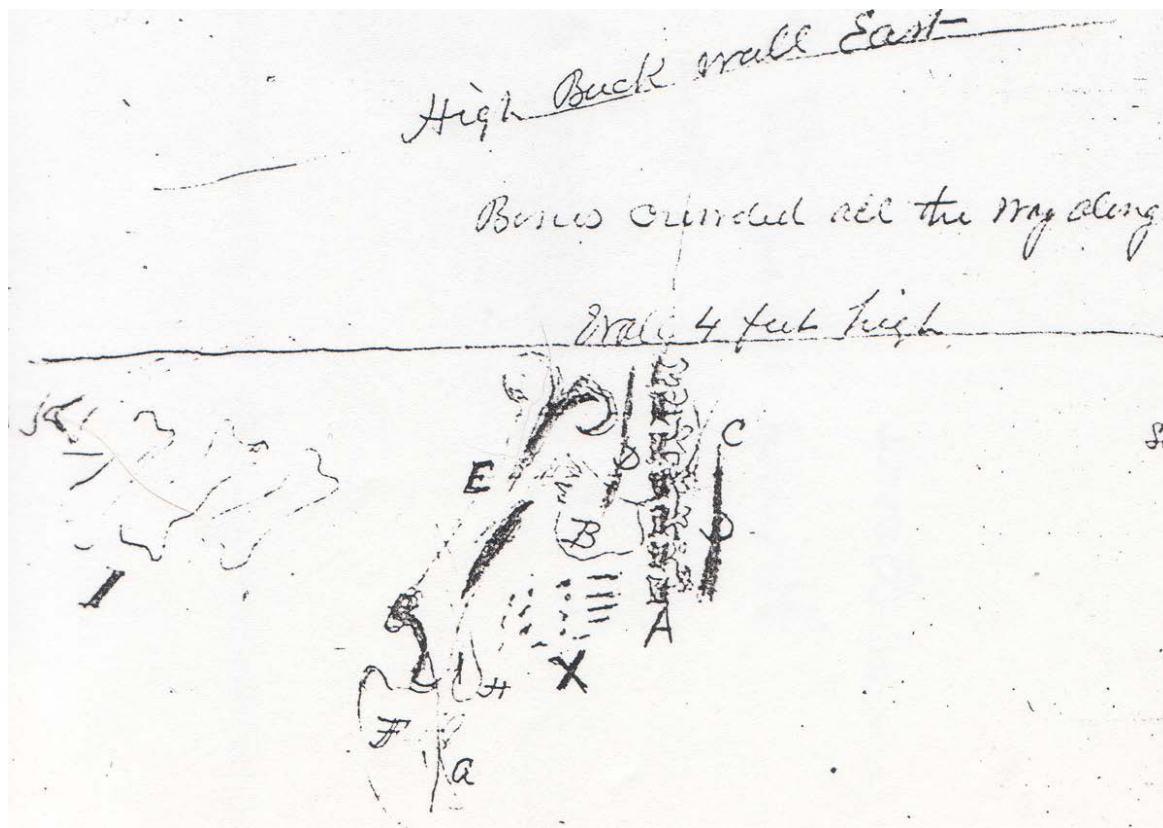 High Back wall East
Bones crowded all the way along
Wall 4 feet high
C
E
D
B
D
A
X
H
F
a